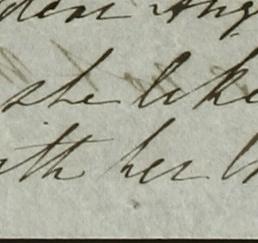 dear Aug
she like
ith her